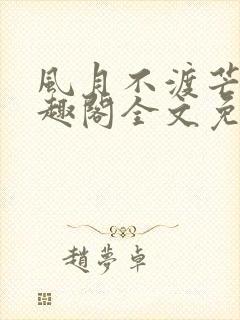 風月不渡芒
趣閣全文免
趙夢卓